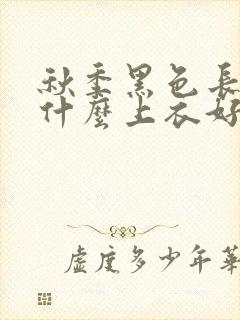 秋季黑色長
什麼上衣好
虛度多少年華